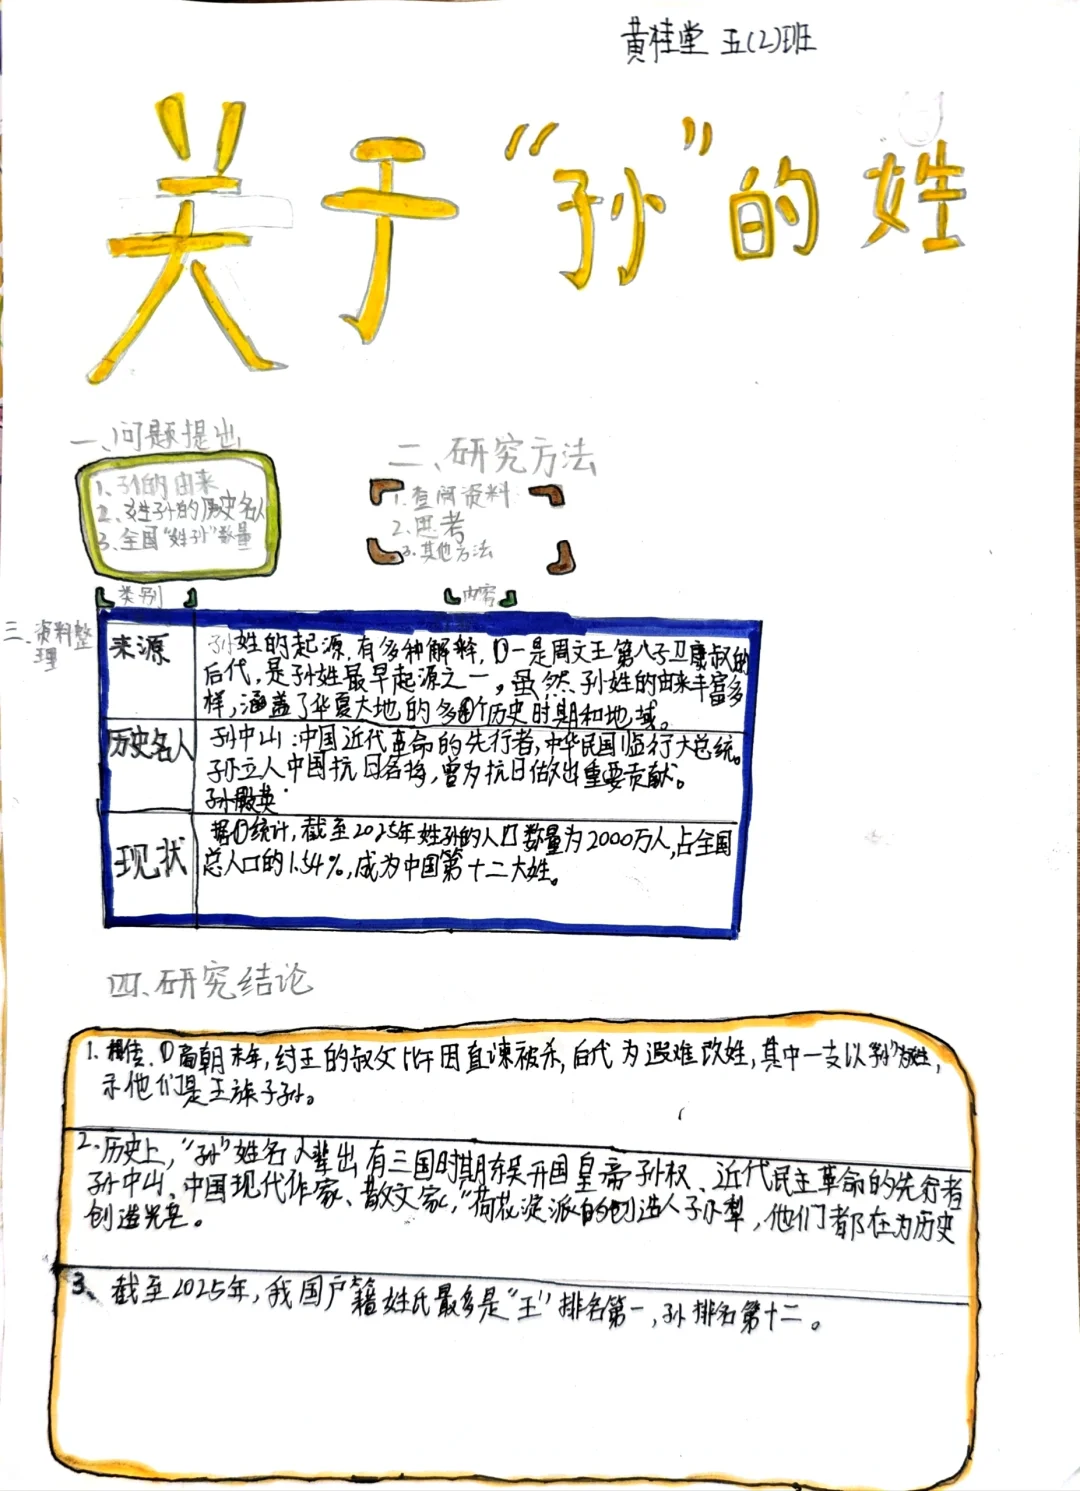 黄桂堂 五(2)班
关于“孙”的姓
一、问题提出
1、孙的由来
2、姓孙的历史名人
3、全国“姓孙”数量
二、研究方法
1.查阅资料
2.思考
3.其他方法
三、资料整理
类别 内容
来源
孙姓的起源,有多种解释,①一是周文王第八子卫康叔的
后代,是孙姓最早起源之一。虽然孙姓的由来丰富多
样,涵盖了华夏大地的多个历史时期和地域。
历史名人
孙中山:中国近代革命的先行者,中华民国临行大总统。
孙立人中国抗日名将,曾为抗日做出重要贡献。
孙殿英
现状
据统计,截至2025年姓孙的人口数量为2000万人,占全国
总人口的1.54%,成为中国第十二大姓。
四、研究结论
1.相传,①商朝末年,纣王的叔父比干因直谏被杀,后代为避难改姓,其中一支以“孙”为姓,
示他们是王族子孙。
2.历史上,“孙”姓名人辈出有三国时期东吴开国皇帝孙权、近代民主革命的先行者
孙中山、中国现代作家、散文家,“荷花淀派的创造人孙犁,他们都在为历史
创造光芒。
3、截至2025年,我国户籍姓氏最多是“王”排名第一,孙排名第十二。